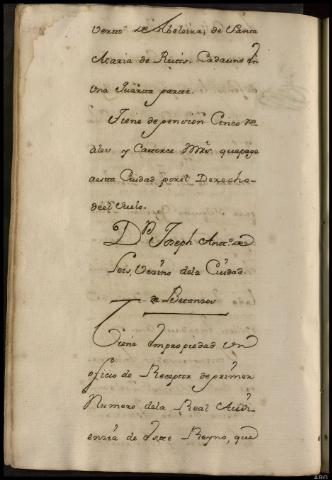 de Santa
Maria de Rutis. Cadauno en
Una Quarta parte.
Tiene de pension Cinco Rs.
y Catorce Mrs. quepaga
aesta Ciudad porel Derecho
del suelo.
Dn. Joseph Anto. de
Vezino dela Ciudad
de Betanzos
Tiene Impropiedad Un
oficio de Receptor de primer
Numero dela Real Audi
enzia de este Reyno, que